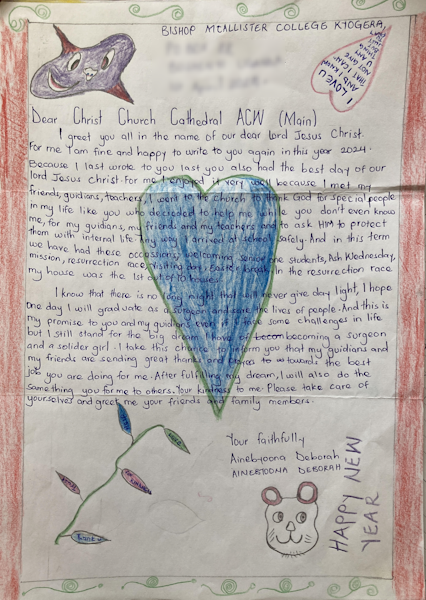 BISHOP MCALLISTER COLLEGE KYOGERA,
I LOVE U
AND I KNOW
THAT I CAN
NOT GIVE
U ANY
THING
Dear Christ Church Cathedral ACW (Main)
I greet you all in the name of our dear Lord Jesus Christ.
For me I am fine and happy to write to you again in this year 2024.
Because I last wrote to you last you also had the best day of our
lord Jesus christ. For me I enjoyed it very well because I met my
friends, guidians, teachers. I went to the church to thank God for special people
in my life like you who decided to help me while you don't even know
me, for my guidians, my friends and my teachers and to ask HIM to protect
them with internal life. Any way I arrived at school safely. And in this term
we have had these occassions; welcoming senior one students, Ash Wednesday,
mission, resurrection race, visiting day, Easter break. In the resurrection race
my house was the 1st out of 10 houses.
I know that there is no long night that will never give day light, I hope
one day I will graduate as a surgeon and save the lives of people. And this is
my promise to you and my guidians even if I face some challenges in life
but I still stand for the big dream I have of becom becoming a surgeon
and a solider girl. I take this chance to inform you that my guidians and
my friends are sending great thanks and to towards the best
job you are doing for me. After fulfilling my dream, I will also do the
same thing you for me to others. Your kindness to me. Please take care of
yourselves and greet me your friends and family members.
Your faithfully
Ainebyoona Deborah
AINEBYOONA DEBORAH
HAPPY NEW
YEAR